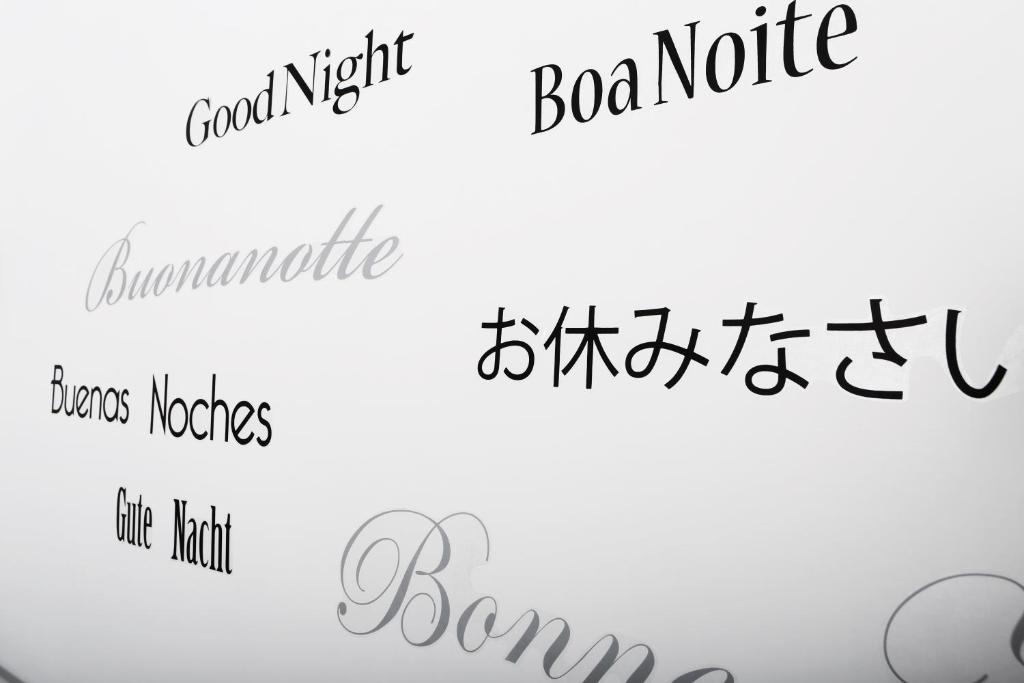 Good Night
Boa Noite
Buonanotte
お休みなさし
Buenas Noches
Gute Nacht